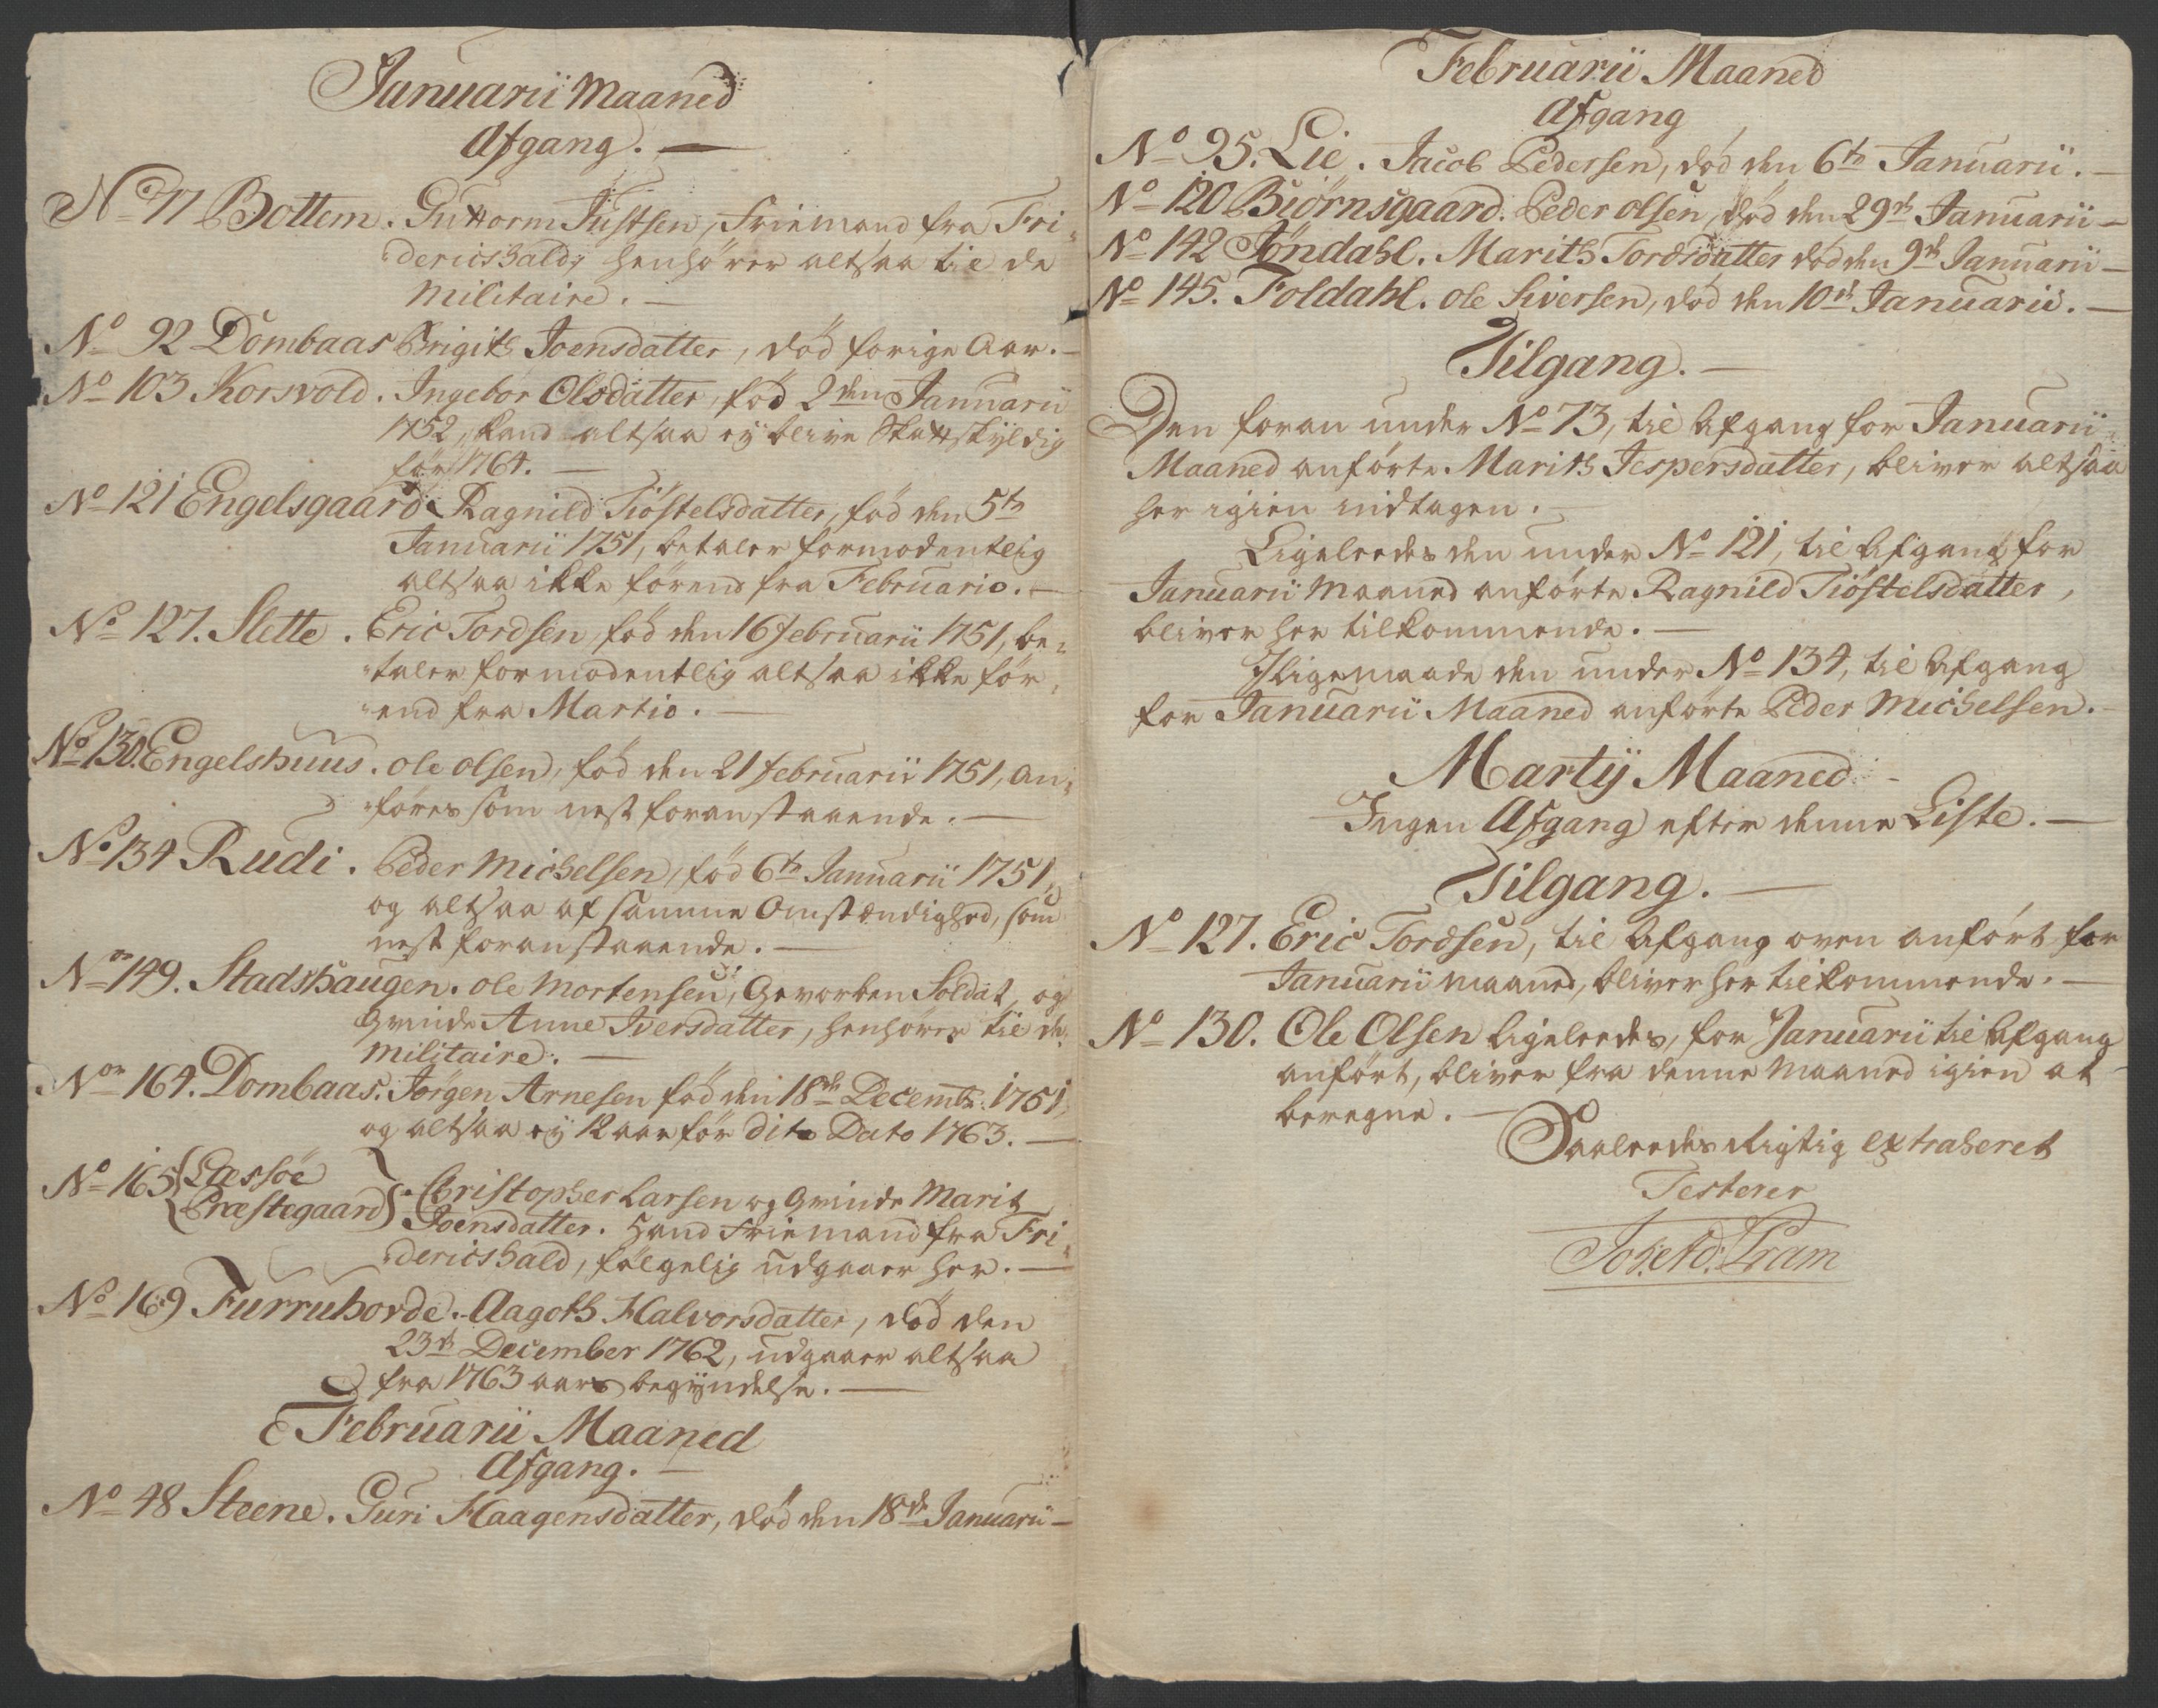 Januarii Maaned
Afgang. —
No 77 Bottem. Guttorm Justsen, Friemand fra Fri-
dericshald, henhörer altsaa til de
Militaire. —
No 92 Dombaas Brigith Joensdatter, död forige Aar. —
No 103 Korsvold. Ingebor Olsdatter, fød 2den Januarii
1752, kand altsaa ey blive Skattskÿldig
før 1764. —
No 121 Engelsgaard. Ragnild Tiöstelsdatter, fød den 5te
Januarii 1751, betaler formodentlig
altsaa ikke førend fra Februario. —
No 127. Slette. Eric Tordsen, fød den 16 februarii 1751, be-
taler formodentlig altsaa ikke før-
end fra Martio. —
No 130. Engelshuus. Ole Olsen, fød den 21 februarii 1751, an-
föres som nest foranstaaende. —
No 134 Rudi. Peder Michelsen, fød 6te Januarii 1751,
og altsaa af samme Omstændighed, som
nest foranstaaende. —
No 149. Stadshaugen. Ole Mortensen, Gevorben Soldat, og
Qvinde Anne Iversdatter, henhörer til de
Militaire. —
No 164. Dombaas. Jörgen Arnesen fød den 18de Decembr. 1751,
og altsaa eÿ 12 aar før dito Dato 1763. —
No 165 { Læssöe
Præstegaard } Christopher Larsen og Qvinde Marit
Joensdatter. Hand Friemand fra Fri-
dericshald, følgelig udgaaer her. —
No 169 Furruhovde. Aagoth Halvorsdatter, död den
23de December 1762, udgaaer altsaa
fra 1763 aars begÿndelse. —
Februarii Maaned
Afgang. —
No 48 Steene. Guri Haagensdatter, död den 18de Januarii —
Februarii Maaned
Afgang
No 95. Lie. Jacob Pedersen, död den 6te Januarii. —
No 120 Biörnsgaard. Peder Olsen, död den 29de Januarii —
No 142 Jöndahl. Marith Tordsdatter död den 9de Januarii —
No 145. Foldahl. Ole Siversen, död den 10de Januarii. —
Tilgang. —
Den foran under No 73, til Afgang for Januarii
Maaned anførte Marith Jespersdatter, bliver altsaa
her igien indtagen. —
Ligeleedes den under No 121, til Afgang for
Januarii Maaned anførte Ragnild Tiöstelsdatter,
bliver her tilkommende. —
Iligemaade den under No 134, til Afgang
for Januarii Maaned anførte Peder Michelsen. —
Martij Maaned
Ingen Afgang efter denne Liste. —
Tilgang. —
No 127. Eric Tordsen, til Afgang oven anført for
Januarii maaned, bliver her tilkommende. —
No 130. Ole Olsen ligeleedes, for Januarii til Afgang
anført, bliver fra denne Maaned igien at
beregne. —
Saaleedes Rigtig extraheret
Testerer
Joh: Ad: Pram